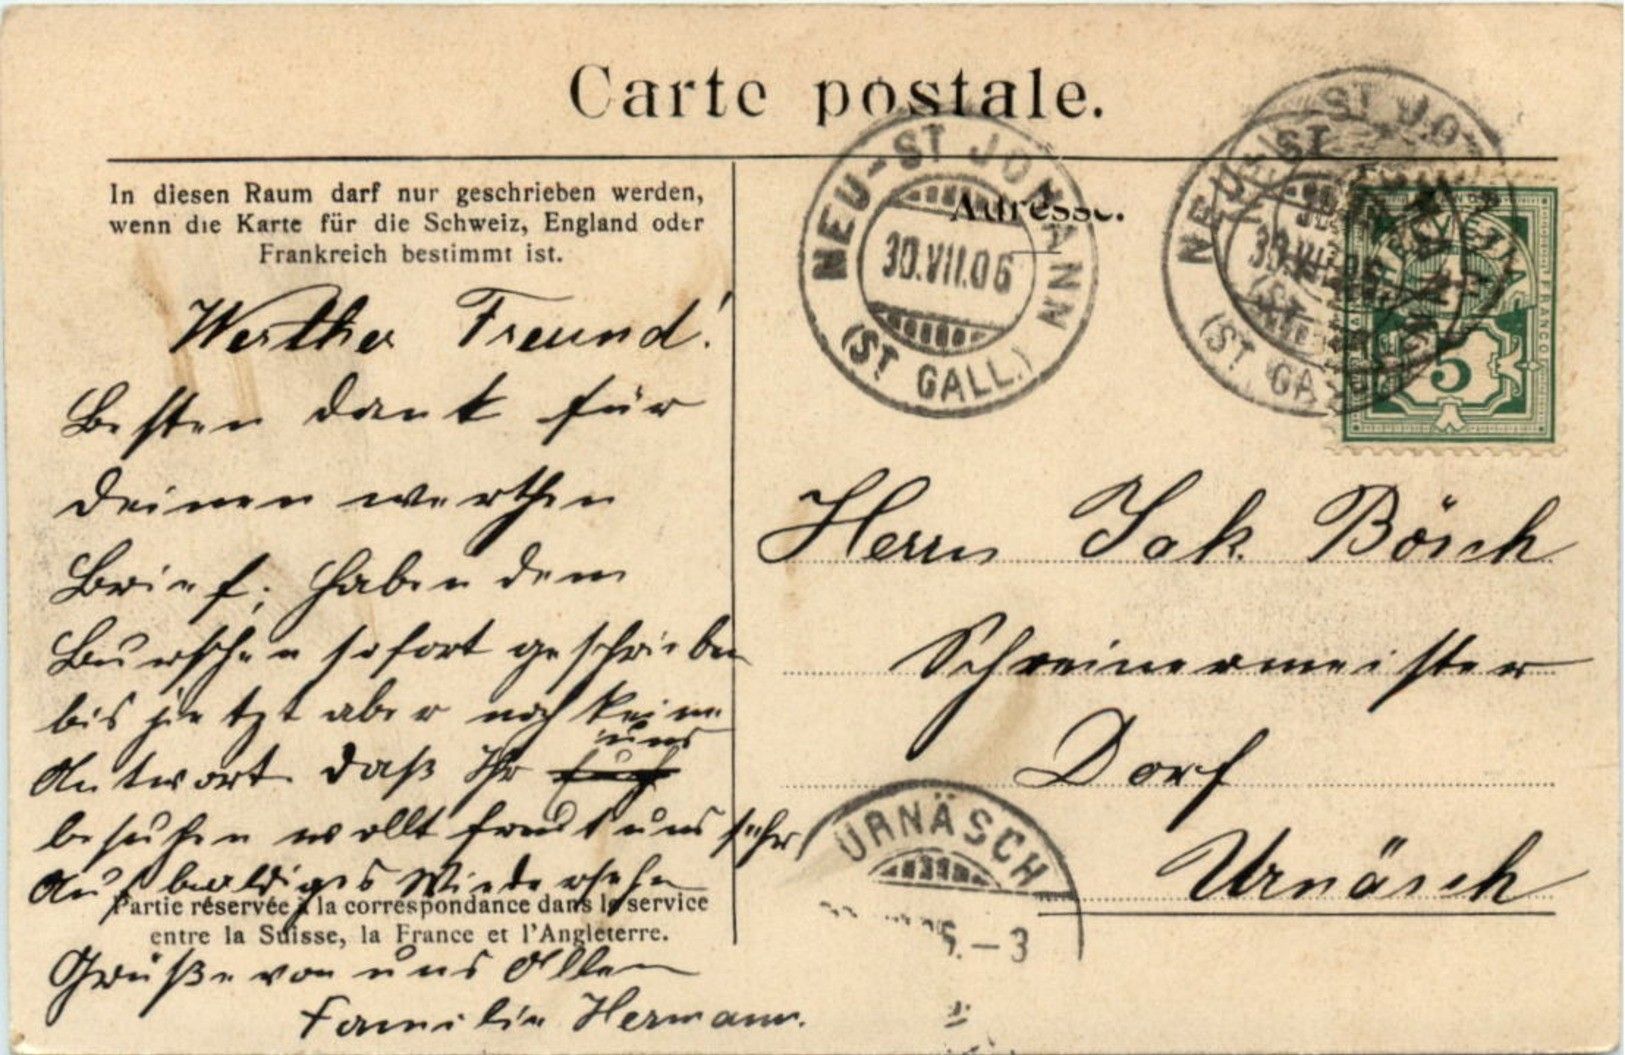 Carte postale.
In diesen Raum darf nur geschrieben werden,
wenn die Karte für die Schweiz, England oder
Frankreich bestimmt ist.
Werther Freund!
Besten Dank für
deinen werthen
Brief; haben dem
Burschen sofort geschrieben
bis jetzt aber noch keine
Antwort daß Ihr uns
besuchen wollt freut uns sehr
Auf baldiges Wiedersehn
Partie réservée à la correspondance dans le service
entre la Suisse, la France et l'Angleterre.
Grüße von uns Allen
Familie Hermann.
Adresse.
NEU-ST JOHANN
30.VII.06
(ST GALL.)
NEU-ST JO
30.VII.06
(ST GA
HELVETIA
FRANCO
5
Herrn Jak. Bösch
Schreinermeister
Dorf
Urnäsch
URNÄSCH
-3